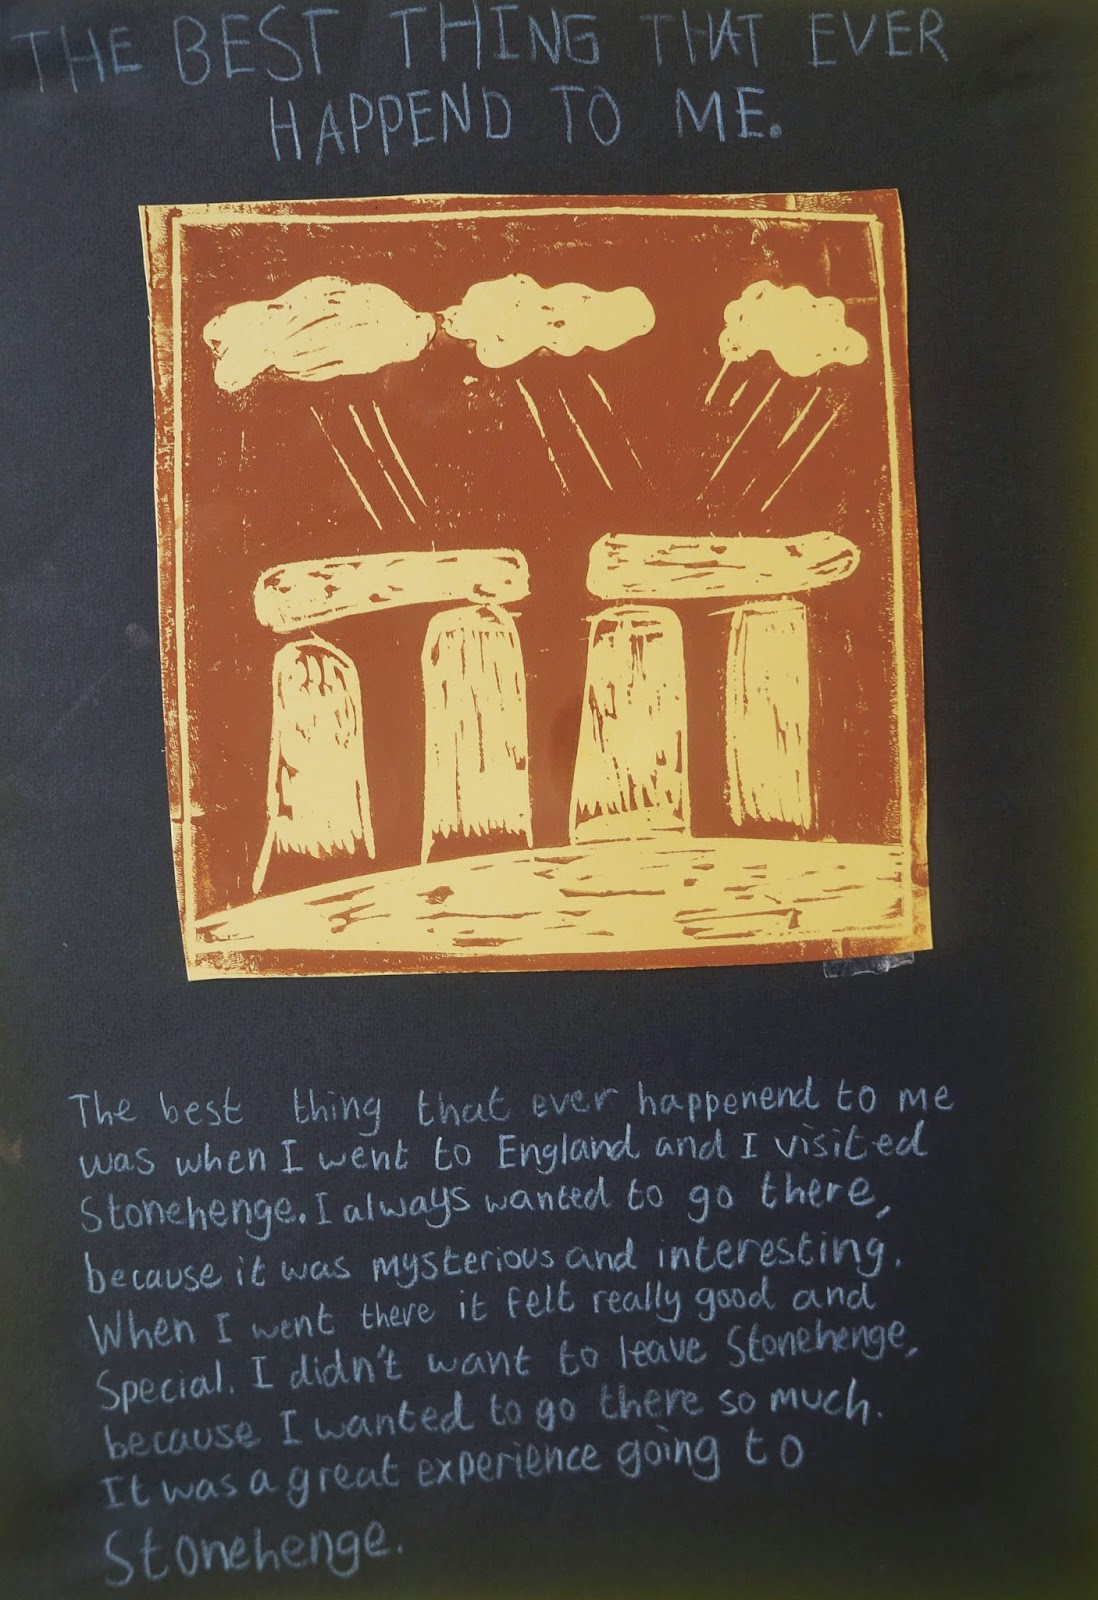 THE BEST THING THAT EVER
HAPPEND TO ME.
The best thing that ever happenend to me
was when I went to England and I visited
Stonehenge. I always wanted to go there,
because it was mysterious and interesting.
When I went there it felt really good and
Special. I didn't want to leave Stonehenge,
because I wanted to go there so much.
It was a great experience going to
Stonehenge.